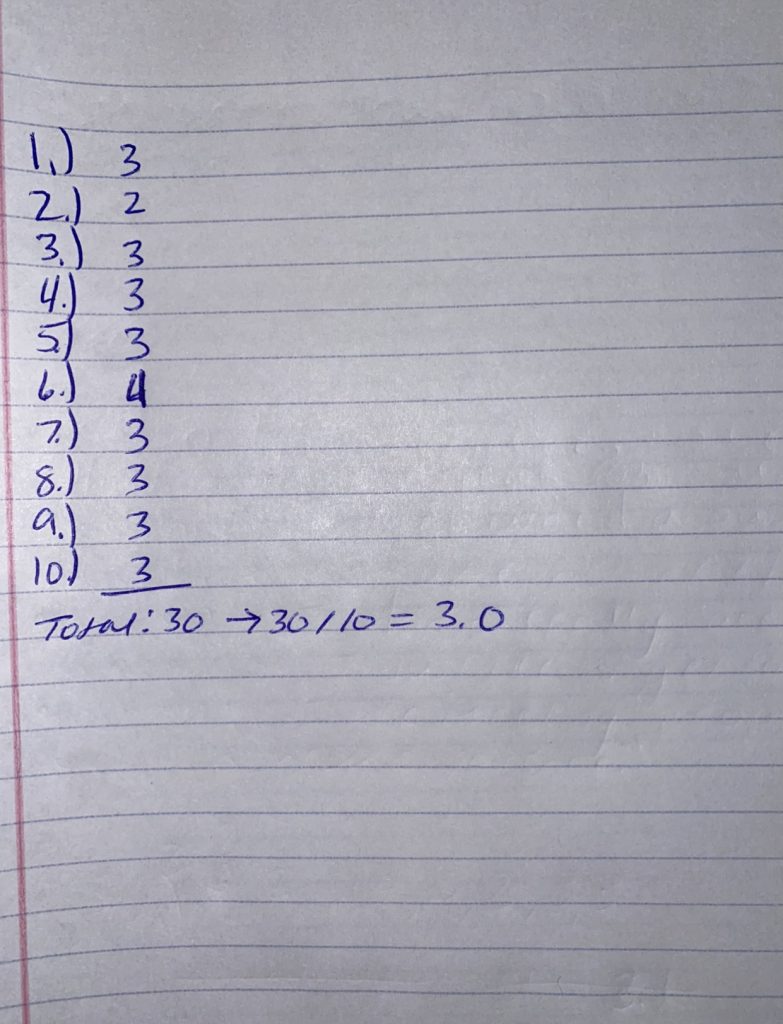 1.) 3
2.) 2
3.) 3
4.) 3
5.) 3
6.) 4
7.) 3
8.) 3
9.) 3
10) 3
Total: 30 → 30 / 10 = 3.0